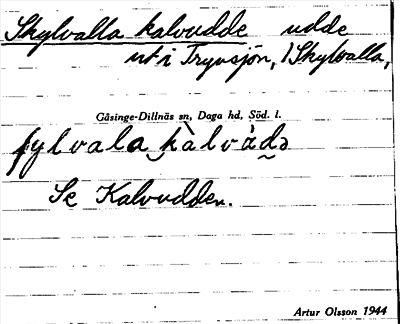 Skylvalla kalvudde udde
ut i Tryvsjön, 1 Skylvalla,
Gåsinge-Dillnäs sn, Daga hd, Söd. l.
ʃylvala kàlvùdə
Se Kalvudden.
Artur Olsson 1944